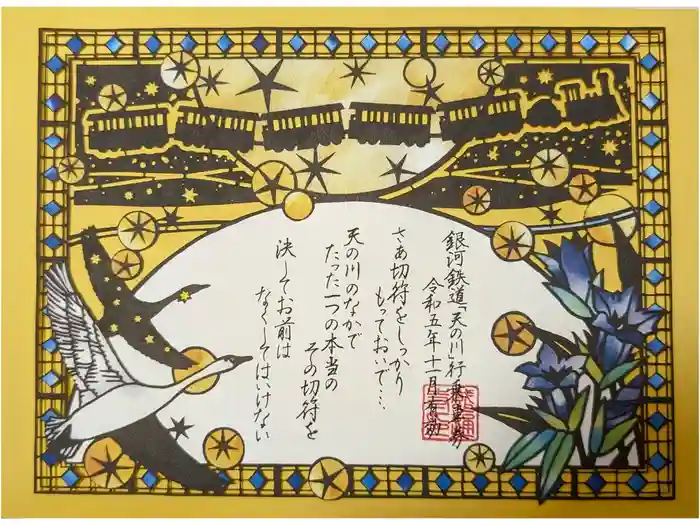 銀河鉄道「天の川」行 乗車券
令和五年十一月有効
さあ切符をしっかり
もっておいで…
天の川のなかで
たった一つの本当の
その切符を
決してお前は
なくしてはいけない